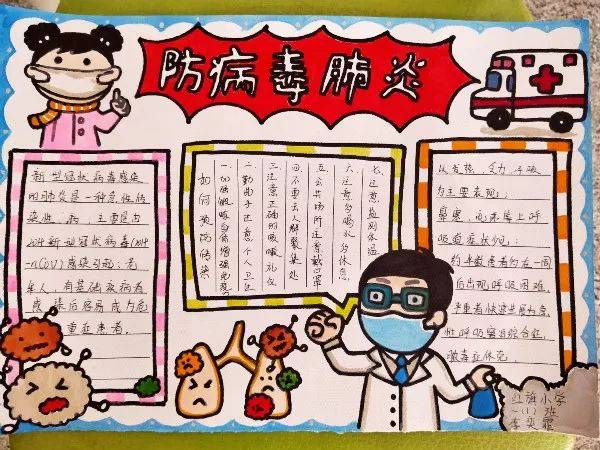 防病毒肺炎
新型冠状病毒感染
的肺炎是一种急性传
染性肺炎
新型冠状病毒(2019
-nCoV)感染引起;老
年人、有基础疾病者
感染后容易成为危
重症患者。
如何预防传染
一、加强锻炼身体增强免疫
二、勤洗手注意个人卫生
三、注意正确的咳嗽礼仪
四、不要去人群聚集处
五、公共场所注意戴口罩
六、注意多喝水多休息
七、注意监测体温
以发热、乏力、干咳
为主要表现,
鼻塞、流涕等上呼
吸道症状少见;
约半数患者约在一周
后出现呼吸困难,
严重者快速进展为急
性呼吸窘迫综合征、
脓毒症休克
红旗小学
一(1)班
李奕霏